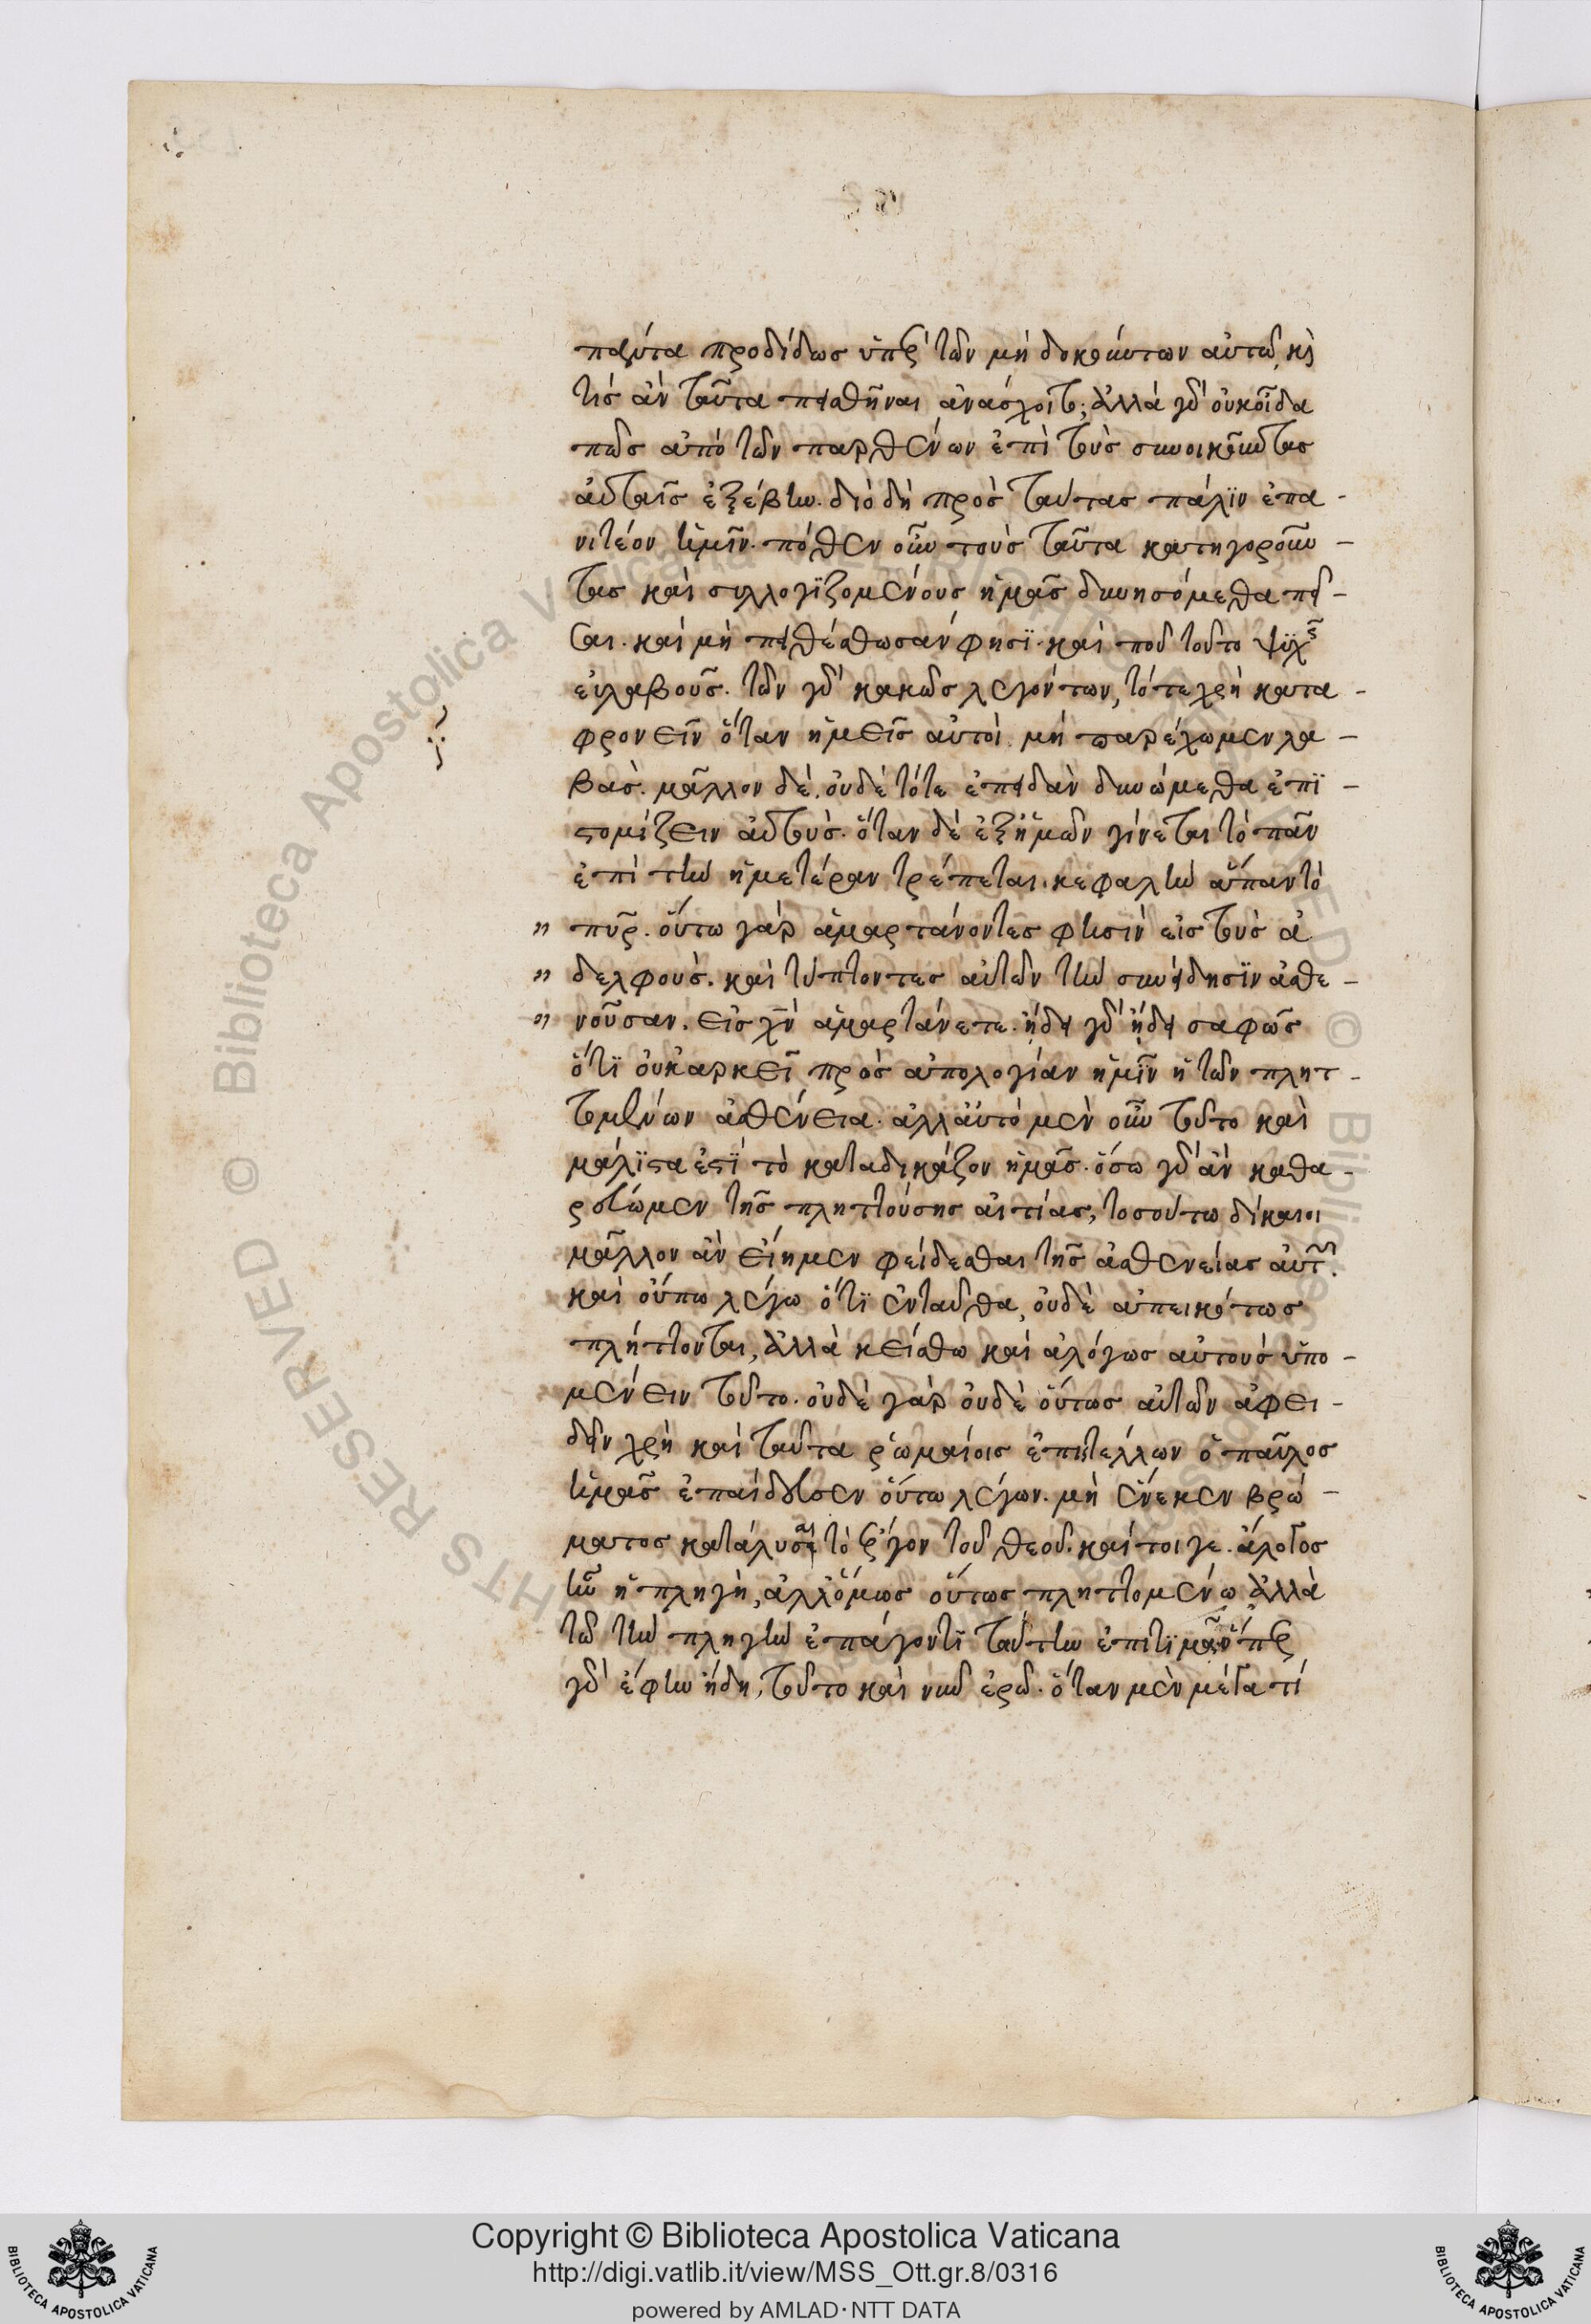 πάντα προδίδως ὑπὲρ τῶν μὴ δοκούντων αὐτῶ, κὶ
τίς ἂν ταῦτα πεισθῆναι ἀνάσχοιτο; ἀλλὰ γὰρ οὐκοῖδα
πῶς ἀπὸ τῶν παρθένων ἐπὶ τοὺς συνοικοῦντας
αὐταῖς ἐξέβην. διὸ δὴ πρὸς ταύτας πάλϊν ἐπα-
νιτέον ἡμῖν. πόθεν οὖν τοὺς ταῦτα κατηγοροῦν-
τας καὶ συλλογϊζομένους ἡμᾶς δυνησόμεθα πεῖ-
σαι. καὶ μὴ πειθέσθωσαν φησϊ. καὶ ποῦ τοῦτο ψϋχῆς
εὐλαβοῦς. τῶν γὰρ κακῶς λεγόντων, τότε χρὴ κατα-
φρονεῖν ὅταν ἡμεῖς αὐτοὶ μὴ παρέχωμεν λα-
βάς. μᾶλλον δὲ, οὐδὲ τότε ἐπειδὰν δυνώμεθα ἐπϊ-
στομίζειν αὐτούς. ὅταν δὲ ἐξἡμῶν γίνεται τὸ πᾶν
ἐπὶ τὴν ἡμετέραν τρέπεται κεφαλὴν ἅπαν τὸ
πῦρ. οὕτω γὰρ ἁμαρτάνοντες φησὶν εἰς τοὺς ἀ
δελφούς. καὶ τύπτοντες αὐτῶν τὴν συνείδησϊν ἀσθε-
νοῦσαν. εἰς χν ἁμαρτάνετε. ἤδει γὰρ ἤδει σαφῶς
ὅτϊ οὐκἀρκεῖ πρὸς ἀπολογίαν ἡμῖν ἡ τῶν πλητ-
τομένων ἀσθένεια. ἀλλ' αὐτὸ μὲν οὖν τοῦτο καὶ
μάλϊστα ἐστϊ τὸ καταδικάζον ἡμᾶς. ὅσω γὰρ ἂν καθα-
ροὶ ὦμεν τῆς πληττούσης αἰτίας, τοσούτω δίκαιοι
μᾶλλον ἂν εἴημεν φείδεσθαι τῆς ἀσθενείας αὐτῶν.
καὶ οὔπω λέγω ὅτϊ ἐνταῦθα, οὐδὲ ἀπεικότως
πλήττονται, ἀλλὰ κείσθω καὶ ἀλόγως αὐτοὺς ὑπο-
μένειν τοῦτο. οὐδὲ γὰρ οὐδὲ οὕτως αὐτῶν ἀφει-
δεῖν χρὴ καὶ ταῦτα ῥωμαίοις ἐπιστέλλων ὁ παῦλος
ἡμᾶς ἐπαίδευσεν οὕτω λέγων. μὴ ἕνεκεν βρώ-
ματος κατάλυσαι τὸ ἔργον τοῦ θεοῦ. καίτοι γε. ἄλογος
ἦν ἡ πληγὴ, ἀλλ' ὅμως οὕτως πληττομένω ἀλλὰ
τῶ τὴν πληγὴν ἐπάγοντϊ ταύτην ἐπιτϊμᾶν ὅπερ
γὰρ ἔφην ἤδη, τοῦτο καὶ νῦν ἐρῶ. ὅταν μὲν μέγα τί